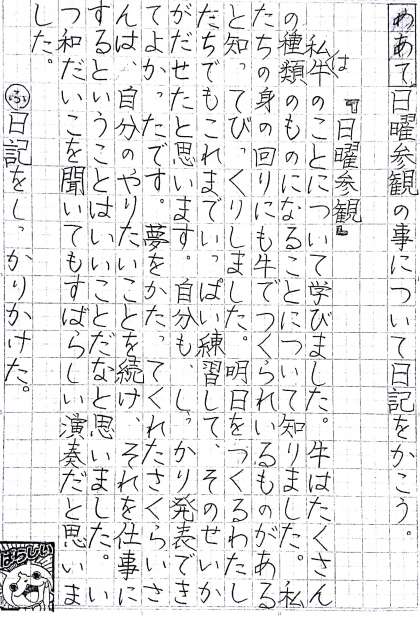 めあて 日曜参観の事について日記をかこう。
『日曜参観』
私は牛のことについて学びました。牛はたくさん
の種類のものになることについて知りました。私
たちの身の回りにも牛でつくられいるものがある
と知ってびっくりしました。明日をつくるわたし
たちでもこれまでいっぱい練習して、そのせいか
がだせたと思います。自分も、しっかり発表でき
てよかったです。夢をかたってくれたさくらいさ
んは、自分のやりたいことを続け、それを仕事に
するということはいいことだなと思いました。い
つ和だいこを聞いてもすばらしい演奏だと思いま
した。
ふ 日記をしっかりかけた。
ばらしい